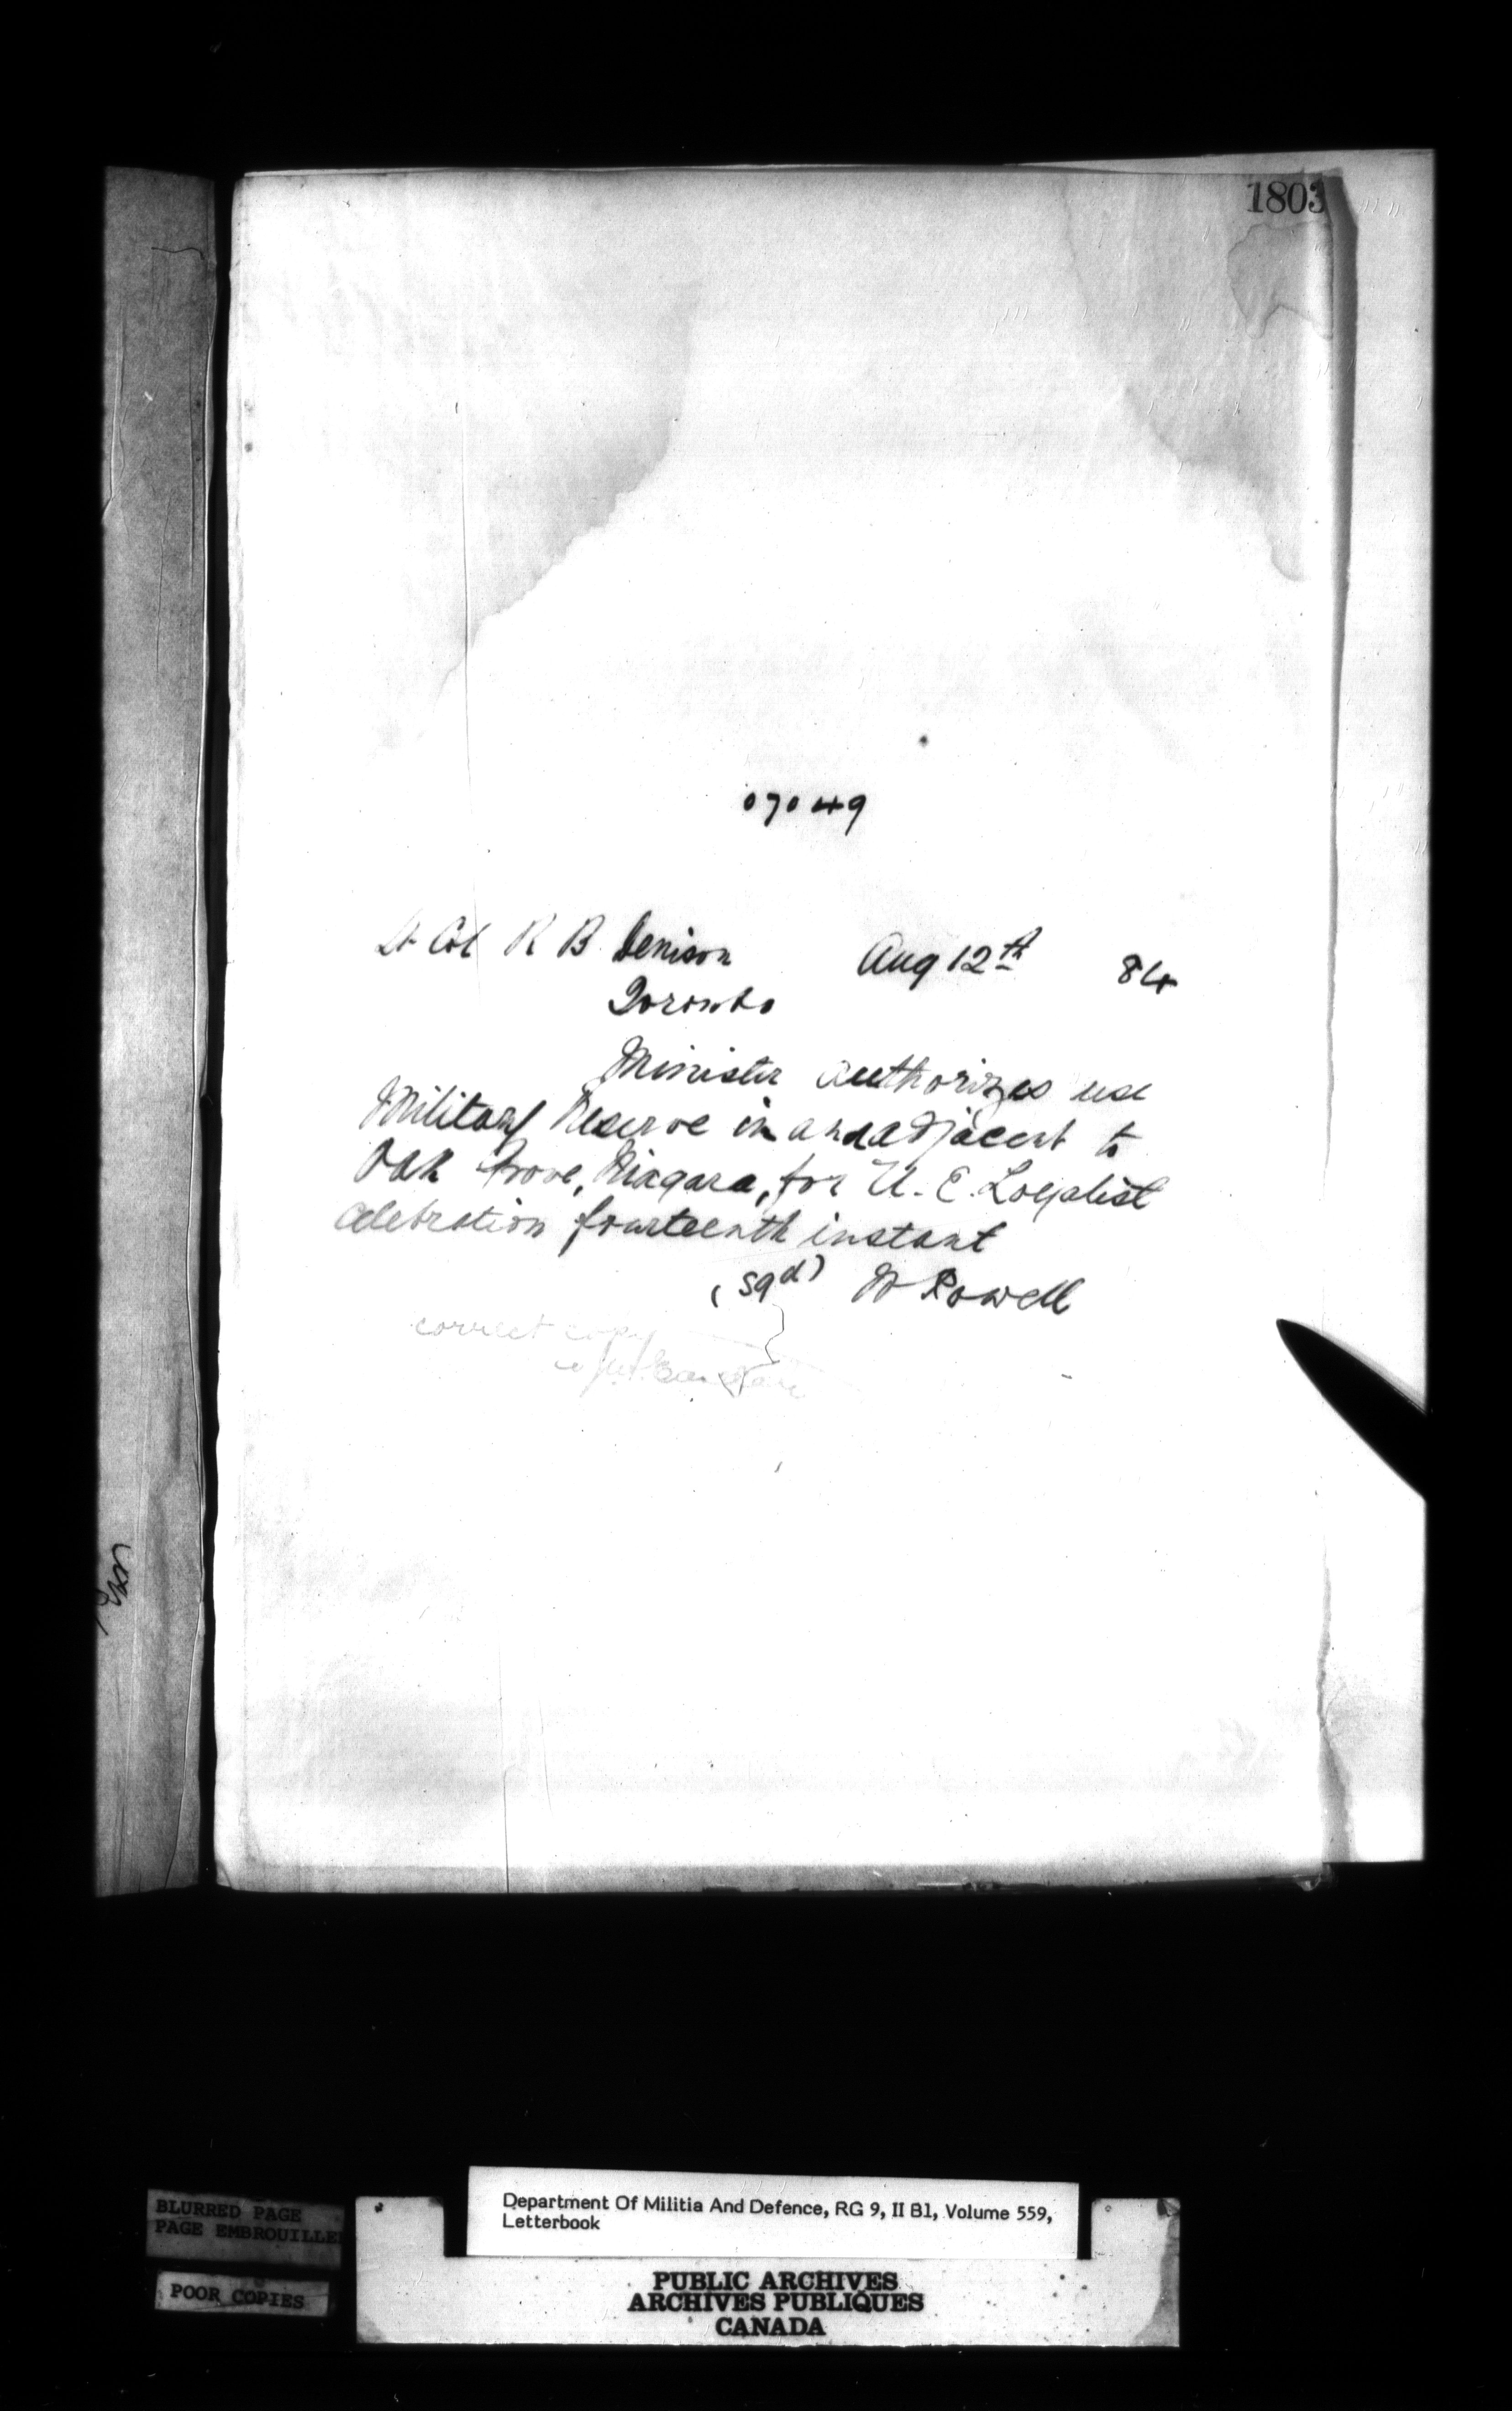 1803
07049
Lt Col R B Denison Aug 12th 84
Toronto
Minister authorizes use
Military Reserve in and adjacent to
Oak Grove, Niagara, for U. E. Loyalist
Celebration fourteenth instant
(sgd) W Powell
correct copy
BLURRED PAGE
PAGE EMBROUILLE
POOR COPIES
Department Of Militia And Defence, RG 9, II B1, Volume 559,
Letterbook
PUBLIC ARCHIVES
ARCHIVES PUBLIQUES
CANADA